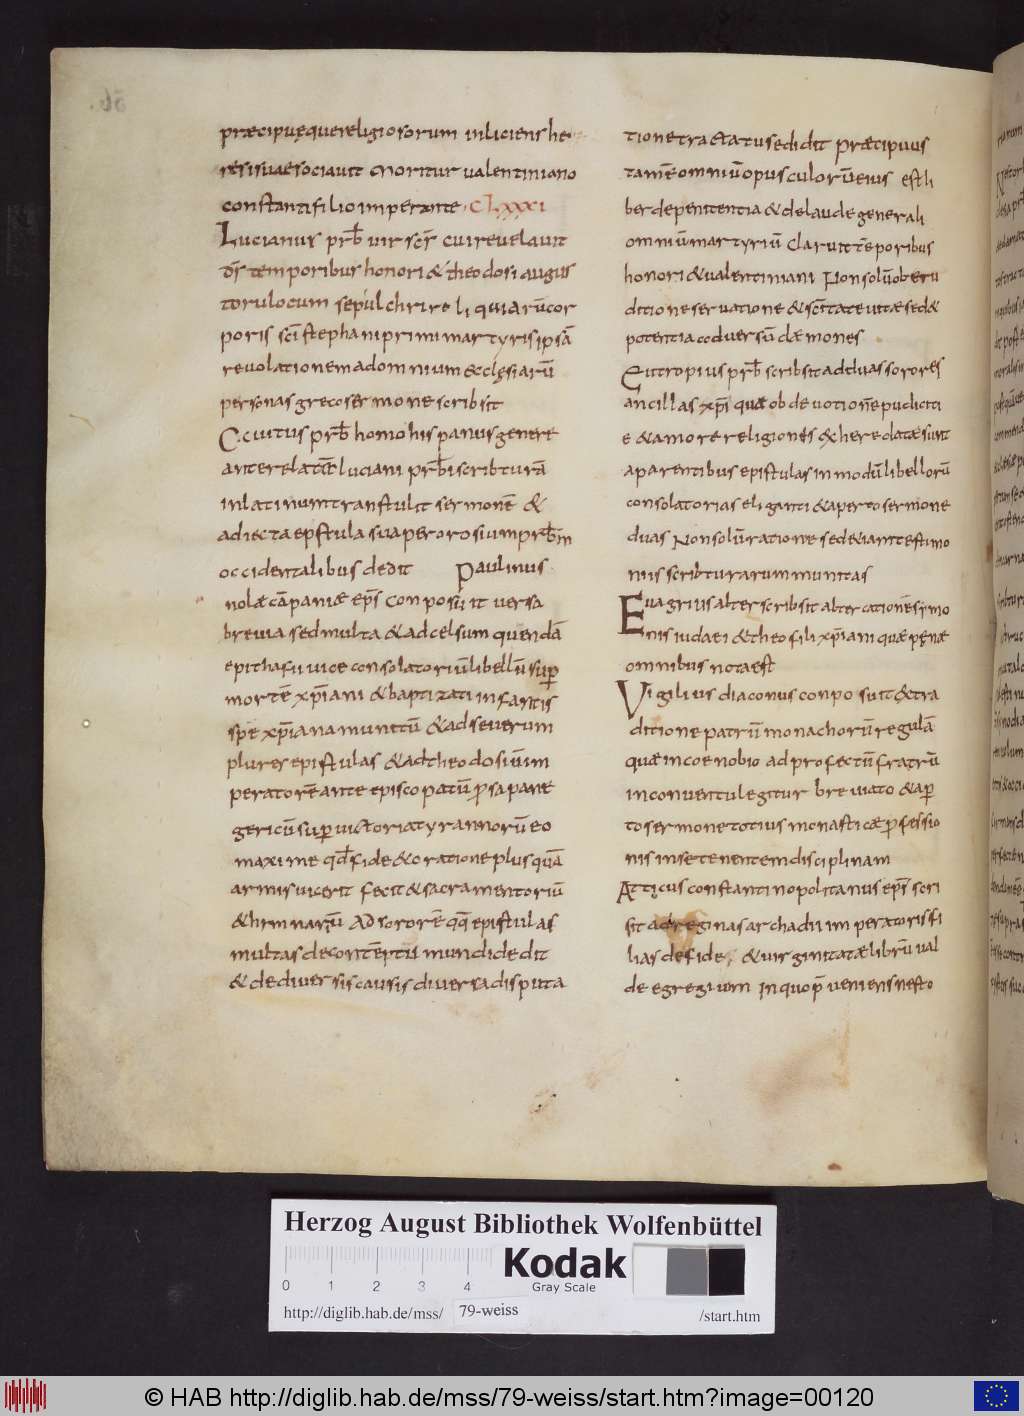 præcipuę que religiosorum inliciens he
resi suae sociavit Moritur valentiniano
constanti filio imperante · CLXXXI
Lucianus prb̄ vir scr̄ cui revelavit
d̄s temporibus honori & theodosi augus
toru locum sepulchri reliquiarū cor
poris sc̄i stephani primi martyris ipsā
revolationem ad omnium ecclęsiarū
personas greco sermone scribsit
Avitus prb̄ homo hispanus genere
ante relatūe luciani prb̄i scribturā
in latinum transtulit sermonē &
adiecta epistula sua per orosium prb̄m
occidentalibus dedit Paulinus
nolæ cāpaniæ ep̄s Conposuit versa
brevia sed multa & ad celsum quendā
epithafii vice consolatoriū libellū super
mortē xp̄iani & baptizati infantis
spe xp̄iana munitū & ad severum
plures epistulas & ad theodosiū im
peratorē ante episcopatū prosa pane
gericū super victoria tyrannorū eo
maxime qd̄ fide & oratione plus quā
armis vicerit fecit & sacramentoriū
& himnarū Ad sororē qq̄ epistulas
multas de contēptu mundi dedit
& de diversis causis diversa disputa
tione tractatus edidit præcipuus
tamē omniū opusculorū eius est li
ber de penitentia & de laude generali
omniū martyriū Claruit tēporibus
honori & valentiniani Non solū ob eru
ditione servatione & sc̄itate vitæ sed &
potentia adversū dæmones
Eutropius prb̄ scribsit ad duas sorores
ancillas xp̄i quæ ob devotionē pudiciti
e & amore religionės exheredatæ sunt
a parentibus epistulas in modū libellorū
consolatorias eliganti & aperto sermone
duas Non solū ratione sed & iam testimo
niis scribturarum munitas
Evagrius alter scribsit altercationē symo
nis iudaei & theofili xp̄iani quæ pęnæ
omnibus nota est
Vigilius diaconus conposuit & tra
ditione patrū monachorū regulā
quæ in coenobio ad profectū fratrū
in conventu legitur breviato & aper
to sermone totius monasticæ professio
nis in se tenentem disciplinam
Atticus constantinopolitanus ep̄s scri
sit ad reginas archadii imperatoris fi
lias de fide & virginitatæ librū val
de egregium In quo p̄veniens nesto
Herzog August Bibliothek Wolfenbüttel
0 1 2 3 4
Kodak
Gray Scale
http://diglib.hab.de/mss/ 79-weiss /start.htm
© HAB http://diglib.hab.de/mss/79-weiss/start.htm?image=00120